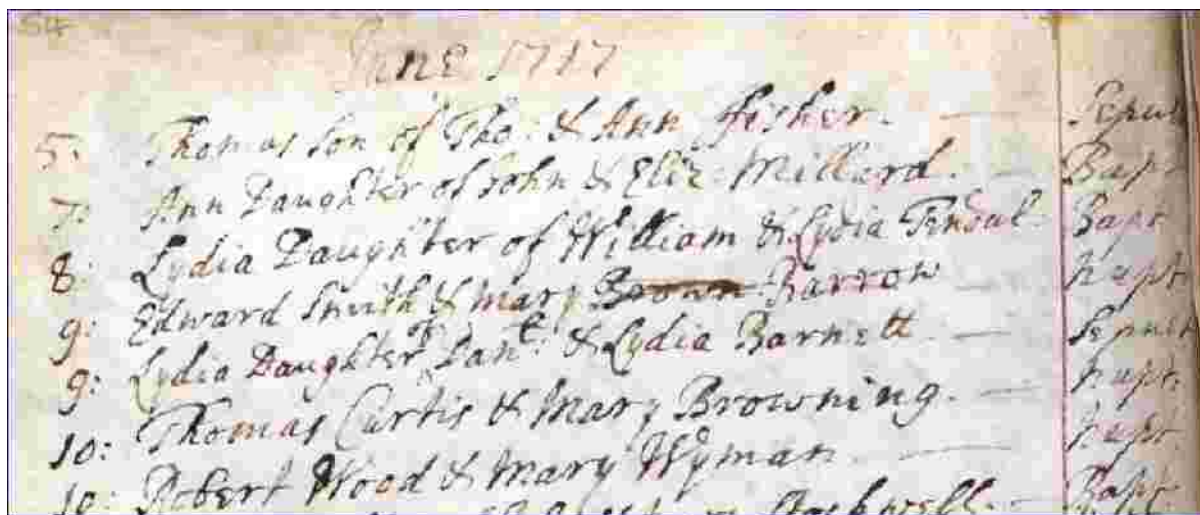 54
June 1717
5: Thomas Son of Tho: & Ann ffisher. Sepul
7: Ann Daughter of John & Eliz: Millard. Bapt
8: Lydia Daughter of William & Lydia Tindal. Bapt
9: Edward Smith & Mary Brown Barrow Nupt
9: Lydia Daughter of Dan:el & Lydia Barnett Sepult
10: Thomas Curtis & Mary Browning. Nupt.
10: Robert Wood & Mary Wyman. Nupt
Bapt.